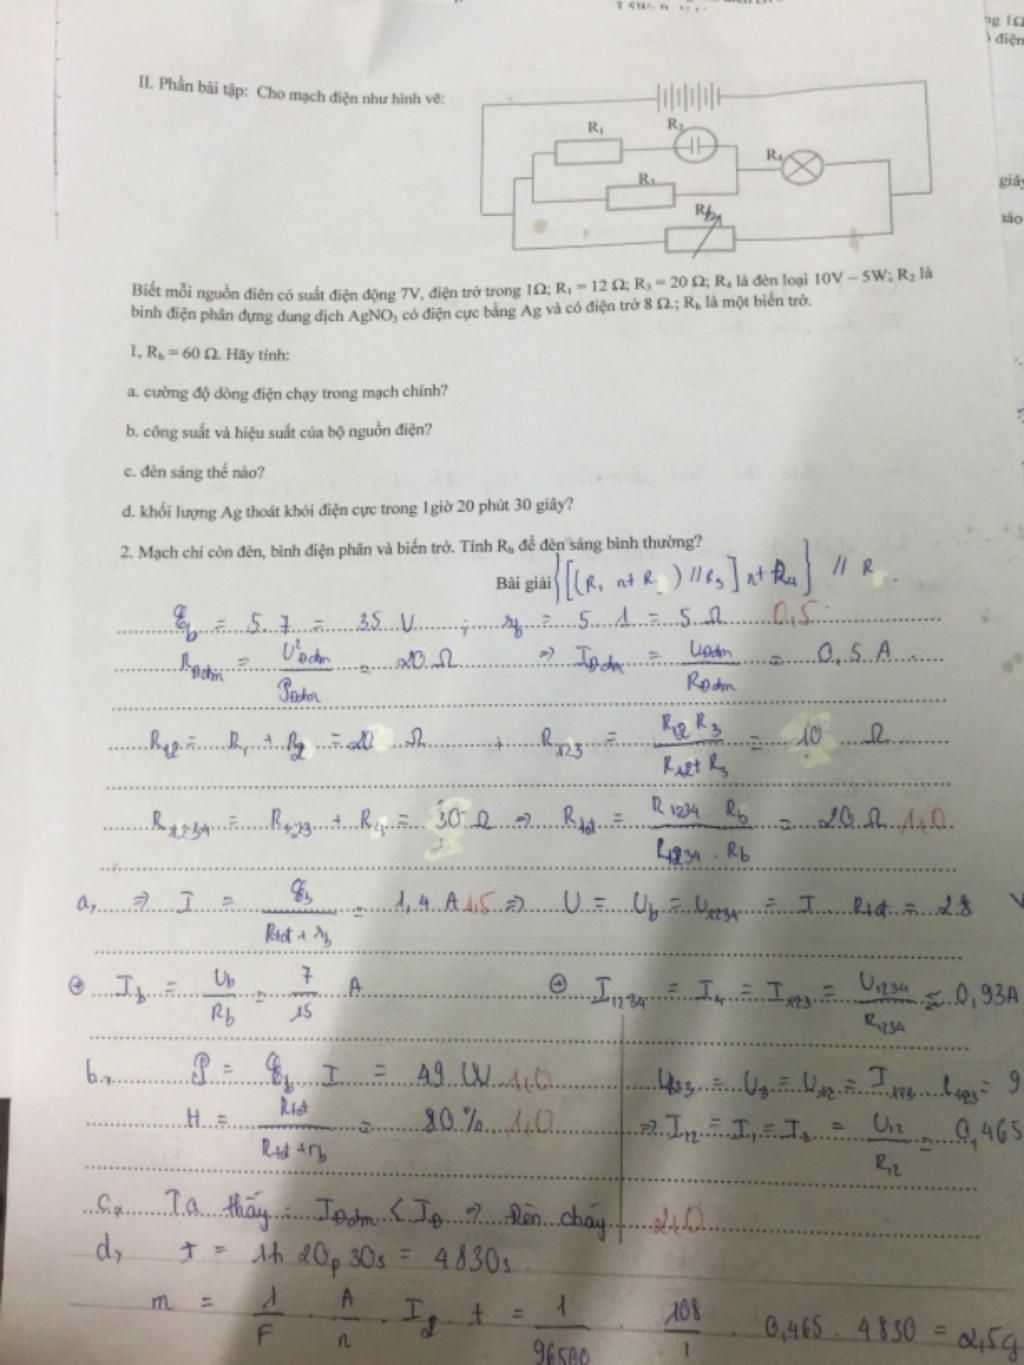 ng 1Ω
điện
II. Phần bài tập: Cho mạch điện như hình vẽ:
R₁
R₂
R₄
R₃
R_b
giây
Biết mỗi nguồn điên có suất điện động 7V, điện trở trong 1Ω; R₁ = 12 Ω; R₃ = 20 Ω; R₄ là đèn loại 10V – 5W; R₂ là
bình điện phân đựng dung dịch AgNO₃ có điện cực bằng Ag và có điện trở 8 Ω.; R_b là một biến trở.
1, R_b = 60 Ω. Hãy tính:
a. cường độ dòng điện chạy trong mạch chính?
b. công suất và hiệu suất của bộ nguồn điện?
c. đèn sáng thế nào?
d. khối lượng Ag thoát khỏi điện cực trong 1giờ 20 phút 30 giây?
2. Mạch chỉ còn đèn, bình điện phân và biến trở. Tính R_b để đèn sáng bình thường?
Bài giải {[(R₁ nt R ) // R₃] nt R₄} // R
ℰ_b = 5.7 = 35 V ; r_b = 5.1 = 5 Ω 0,5
R_Đđm = U²_Đđm / P_Đđm = 20 Ω ⇒ I_Đđm = U_Đđm / R_Đđm = 0,5 A
R₁₂ = R₁ + R₂ = 20 Ω ; R₁₂₃ = R₁₂ R₃ / R₁₂ + R₃ = 10 Ω
R₁₂₃₄ = R₁₂₃ + R₄ = 30 Ω ⇒ R_tđ = R₁₂₃₄ . R_b / R₁₂₃₄ . R_b = 20 Ω 1,0
a, ⇒ I = ℰ_b / R_tđ + r_b = 1,4 A 1,5 ⇒ U = U_b = U₁₂₃₄ = I . R_tđ = 28 V
⊕ I_b = U_b / R_b = 7 / 15 A ⊕ I₁₂₃₄ = I₄ = I₁₂₃ = U₁₂₃₄ / R₁₂₃₄ ≈ 0,93A
b, P = ℰ_b I = 49 W 1,0 U₁₂₃ = U₃ = U₁₂ = I₁₂₃ . R₁₂₃ = 9
H = R_tđ / R_tđ + r_b = 80% 1,0 ⇒ I₁₂ = I₁ = I₂ = U₁₂ / R₁₂ = 0,465
c, Ta thấy : I_Đđm < I_Đ ⇒ Đèn cháy 2,0
d, t = 1h 20p 30s = 4830s
m = 1/F . A/n . I₂ . t = 1/96500 . 108/1 . 0,465 . 4830 = 2,5g